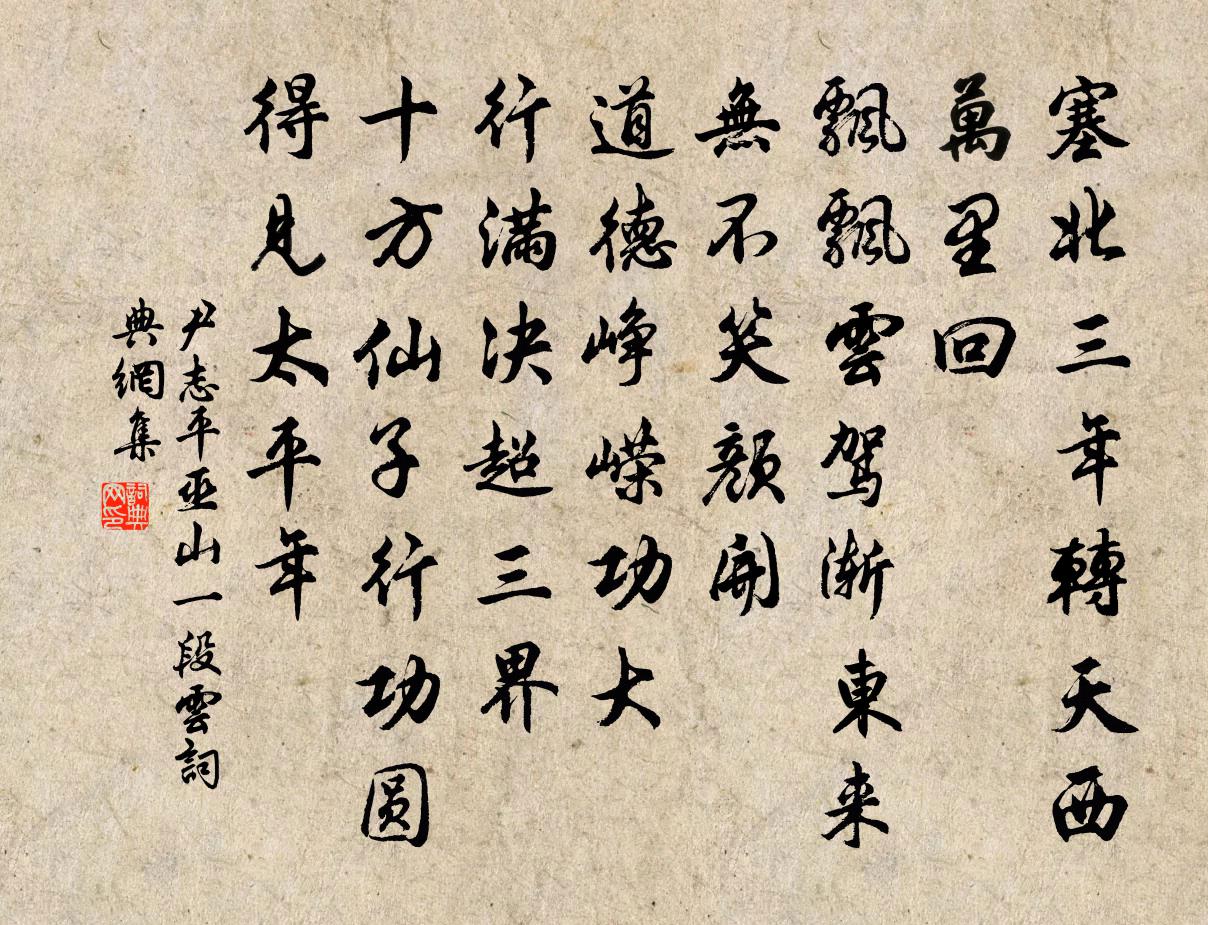 塞北三年轉天西
萬里回
飄飄雲駕漸東来
無不笑顔開
道德峥嶸功大
行滿决超三界
十方仙子行功圆
得見太平年
尹志平巫山一段雲詞
典網集
詞典
网印